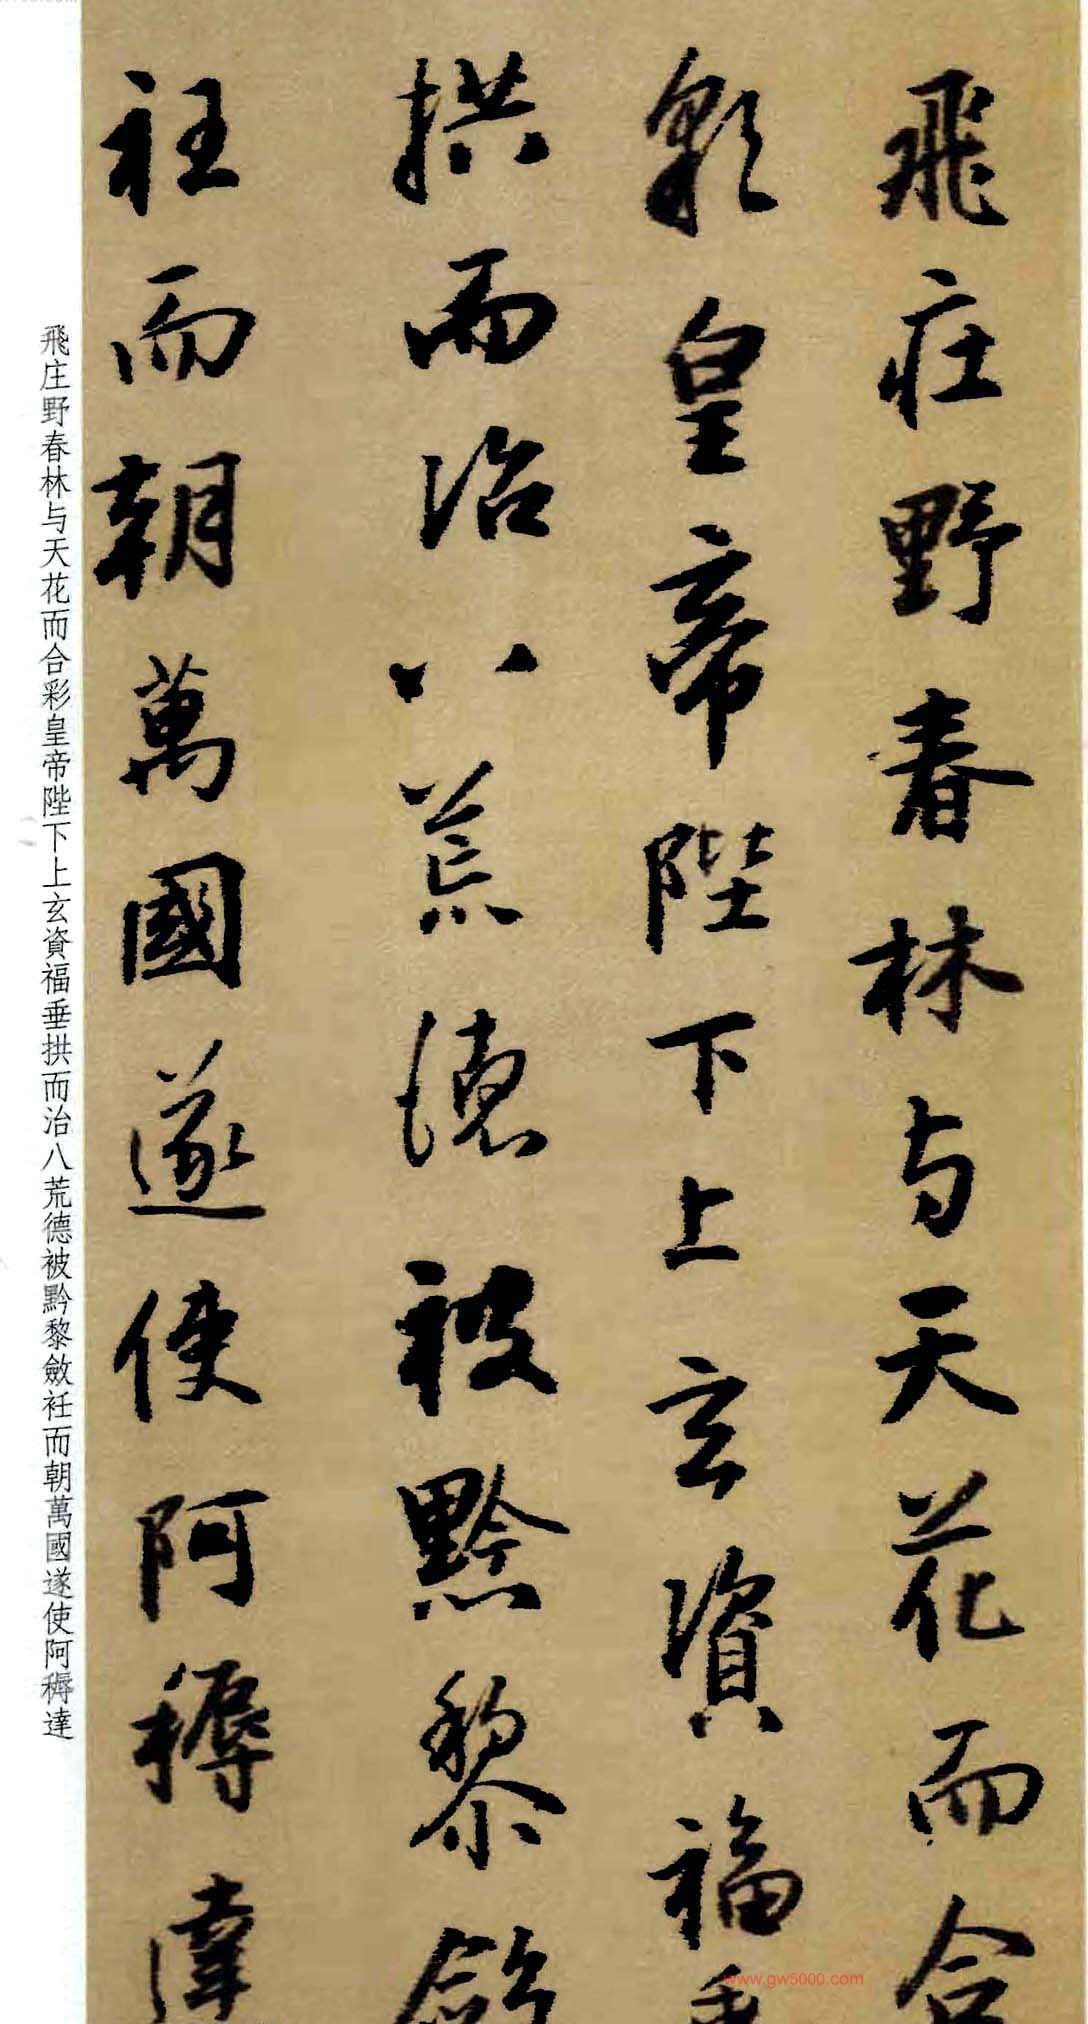 飛庄野春林与天花而合
彩皇帝陛下上玄資福垂
拱而治八荒德被黔黎斂
衽而朝萬國遂使阿耨達
飛庄野春林与天花而合彩皇帝陛下上玄資福垂拱而治八荒德被黔黎斂衽而朝萬國遂使阿耨達
www.gw5000.com